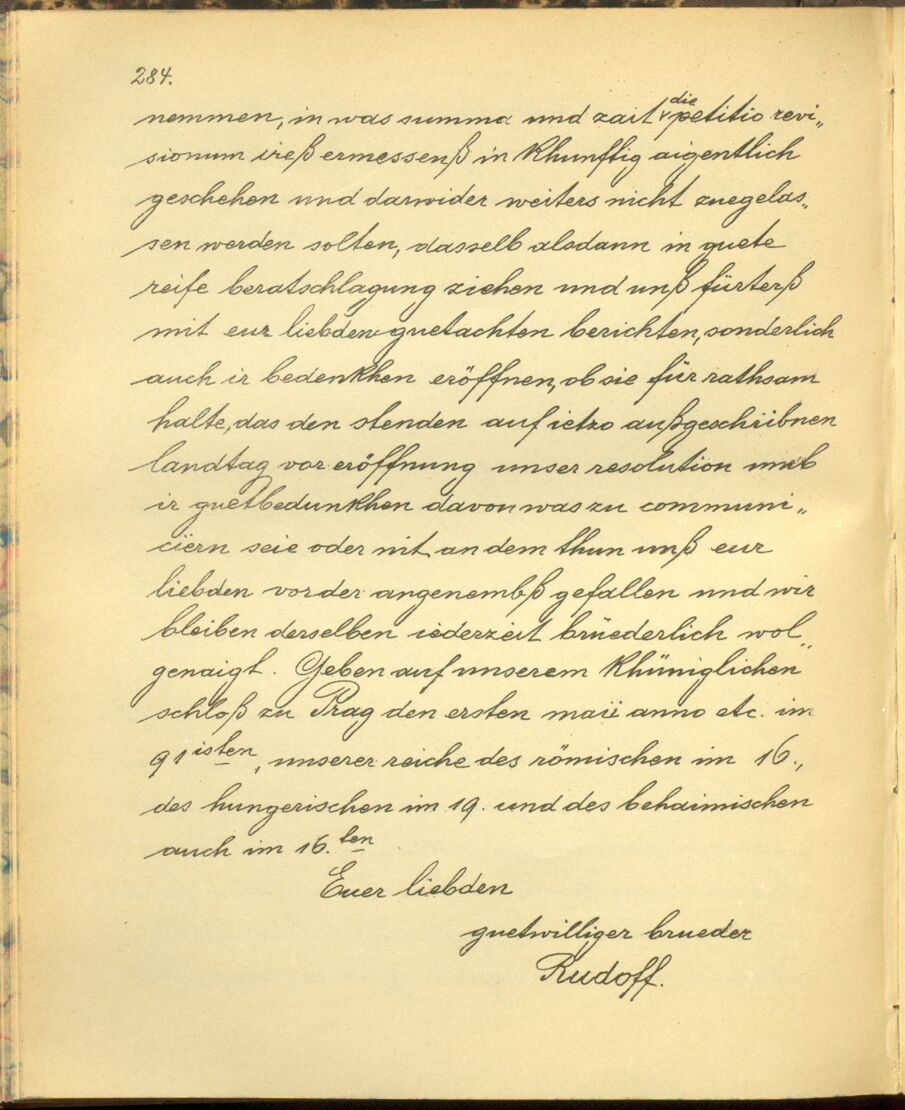 284.
nemmen, in was summa und zait die petitio revi„
sionum ireß ermessenß in khunftig aigentlich
geschehen und darwider weiters nicht zuegelas„
sen werden solten, dasselb alsdann in guete
reife beratschlagung ziehen und unß fürterß
mit eur liebden guetachten berichten, sonderlich
auch ir bedenkhen eröffnen, ob sie für rathsam
halte, das den stenden auf ietzo außgeschribnen
landtag vor eröffnung unser resolution umb
ir guetbedunkhen davon was zu communi„
ciern seie oder nit, an dem thun unß eur
liebden vorder angenembß gefallen und wir
bleiben derselben iederzeit brüederlich wol„
genaigt. Geben auf unserem khüniglichen
schloß zu Prag den ersten maii anno etc. im
91isten, unserer reiche des römischen im 16.,
des hungerischen im 19. und des behaimischen
auch im 16.ten
Euer liebden
guetwilliger brueder
Rudoff.